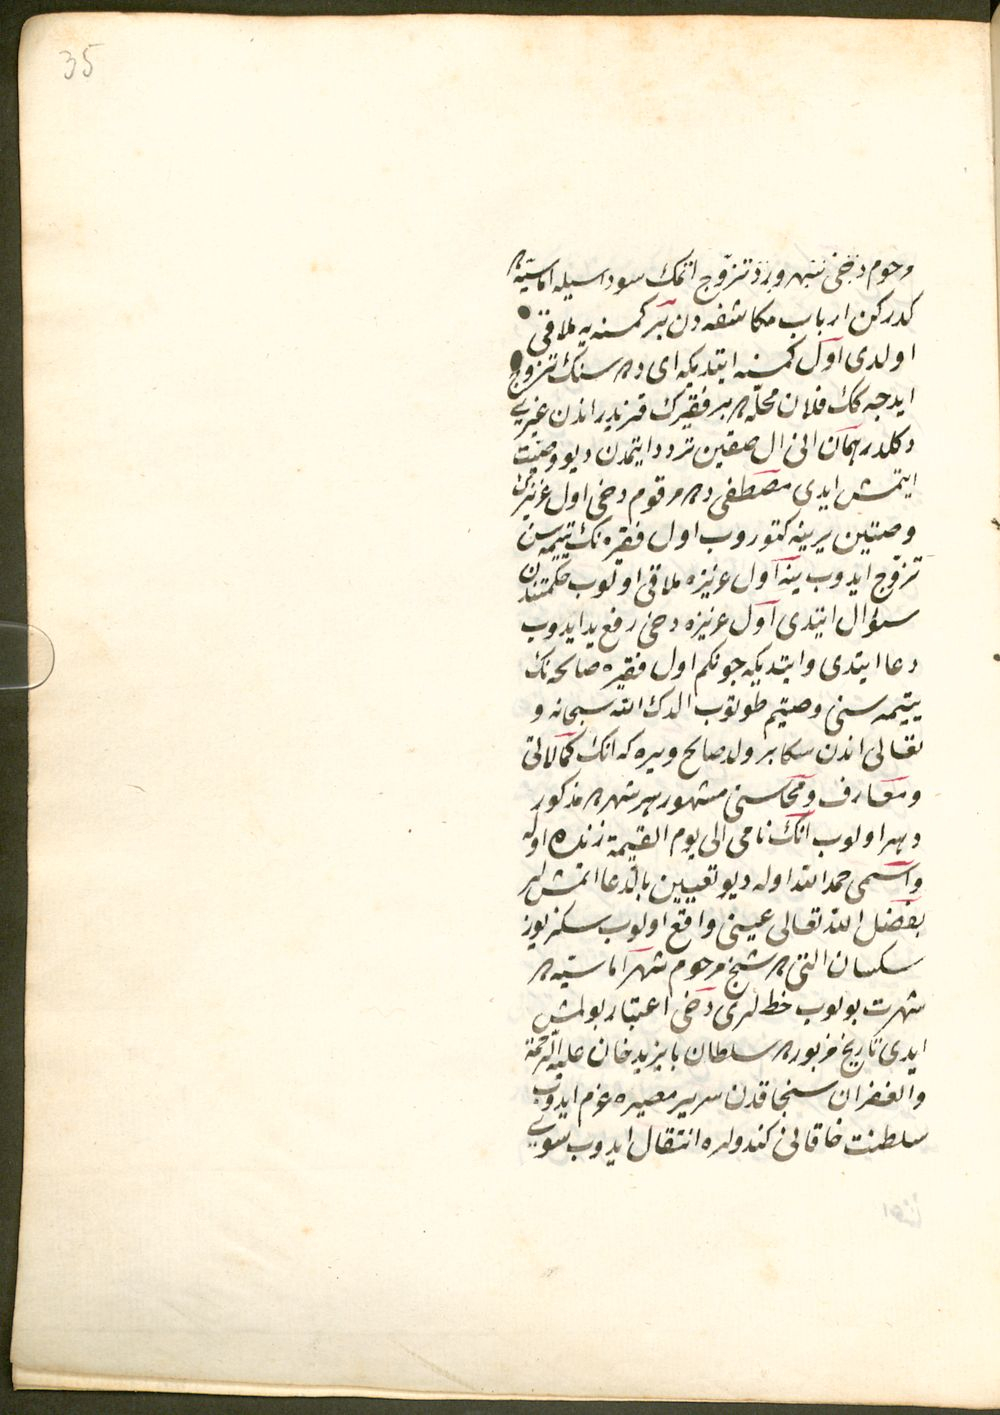 35
مرحوم دخی شهر وبرد تزوج اتمك سوداسیله اماسیه ده
كدركن ارباب مكاشفه دن بر كمسنه یه ملاقی
اولدی اول كمسنه ایتدیكه ای دده سنك تزوج
ایده جه كك فلان محله ده بر فقیرك قزیدر اندن غیری
دكلدر همان انی ال صقین تردد ایتمدن دیو وصیت
ایتمش ایدی مصطفی دده مرقوم دخی اول عزیزك
وصیتین یرینه كتوروب اول فقیره نك یتیمه سن
تزوج ایدوب ینه اول عزیزه ملاقی اولوب حكمتندن
سؤال ایتدی اول عزیزه دخی رفع ید ایدوب
دعا ایتدی وایتدیكه چونكم اول فقیره صالحه نك
یتیمه سنی وصیتم طوتوب الدك الله سبحانه و
تعالی اندن سكا بر ولد صالح ویره كه انك كمالاتی
ومعارف ومحاسنی مشهور هر شهر ده مذكور
دهر اولوب انك نامی الی یوم القیمة زنده اوله
واسمی حمد الله اوله دیو تعیین بالدعا اتمشلر
بفضل الله تعالی عینی واقع اولوب سكز یوز
سكسان التی ده شیخ مرحوم شهر اماسیه ده
شهرت بولوب خطلری دخی اعتبار بولمش
ایدی تاریخ مزبورده سلطان بایزید خان علیه الرحمة
والغفران سنجاقدن سریر مصیره عزم ایدوب
سلطنت خاقانی كندولره انتقال ایدوب سویی